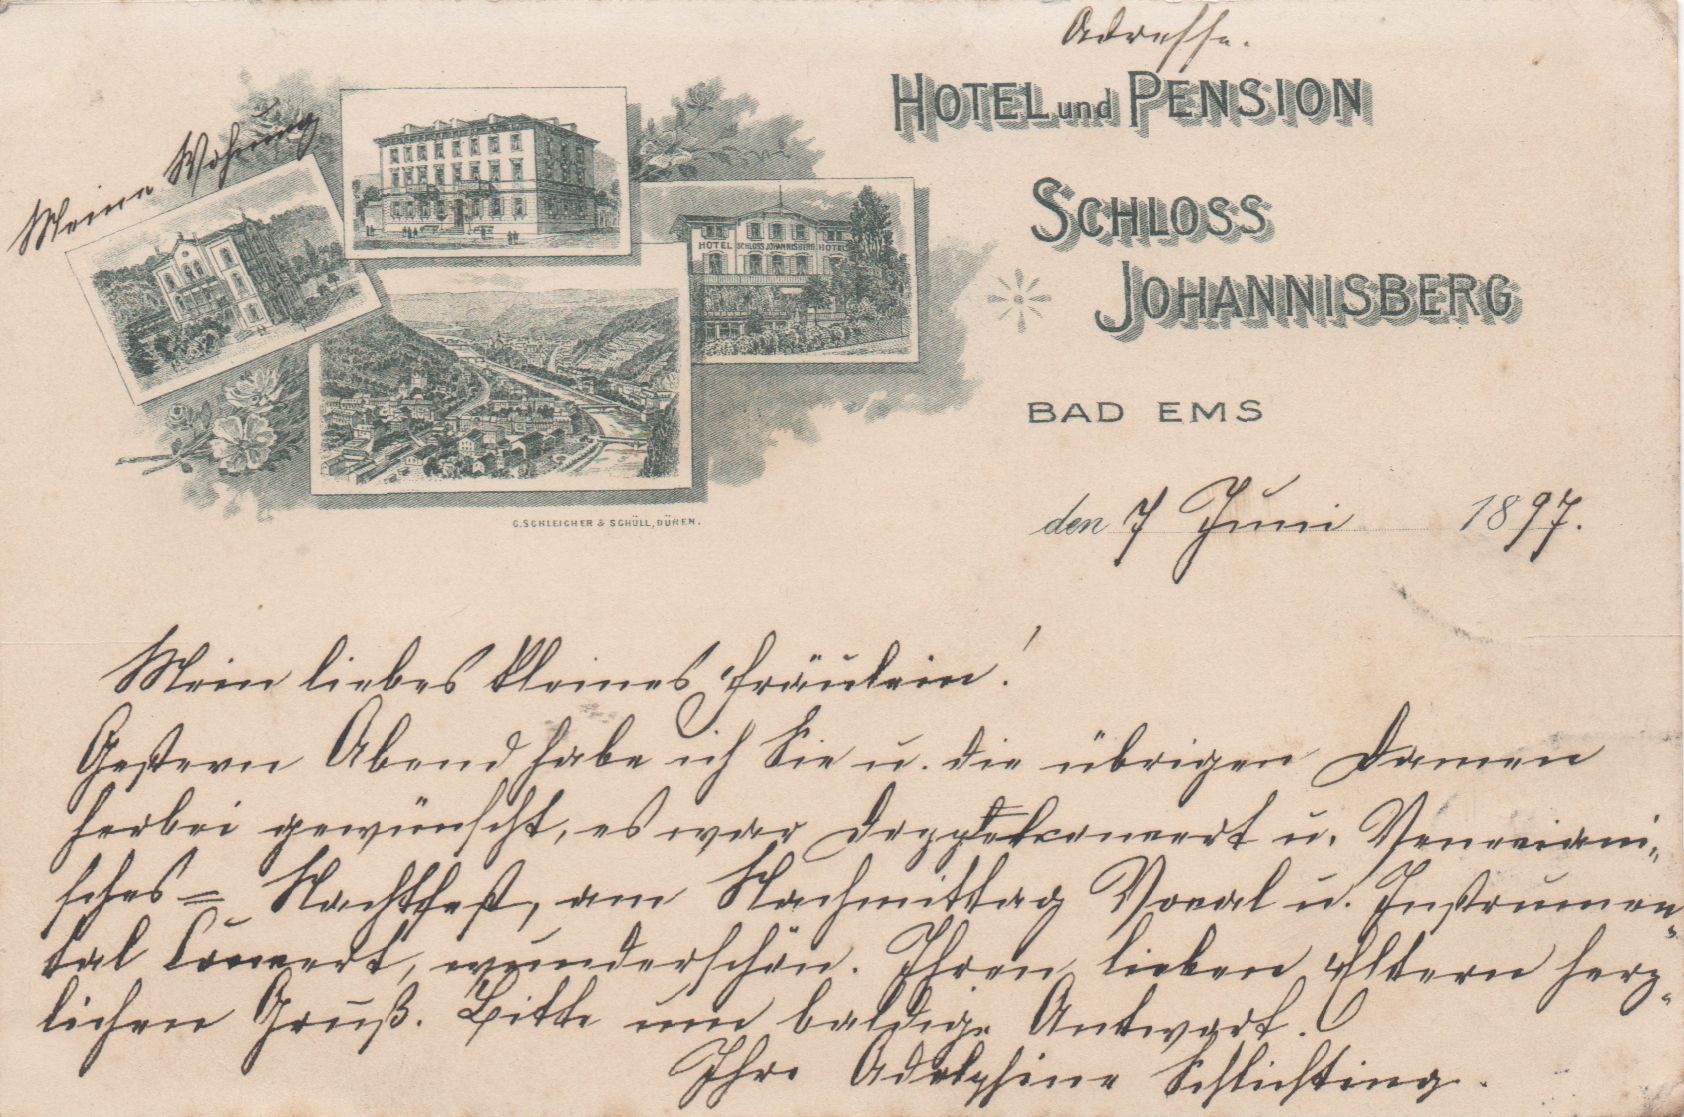 Adresse.
HOTEL und PENSION
Meine Wohnung
SCHLOSS
HOTEL SCHLOSS JOHANNISBERG HOTEL
JOHANNISBERG
BAD EMS
den 7 Juni 1897.
C. SCHLEICHER & SCHÜLL, DÜREN.
Mein liebes kleines Fräulein!
Gestern Abend habe ich Sie u. die übrigen Damen
herbei gewünscht, es war Doppelconcert u. Veneciani-
sches= Nachtfest, am Nachmittag Vocal u. Instrumen-
tal Concert, wunderschön. Ihren lieben Eltern herz-
lichen Gruß. Bitte um baldige Antwort.
Ihre Adolphine Schlichting.